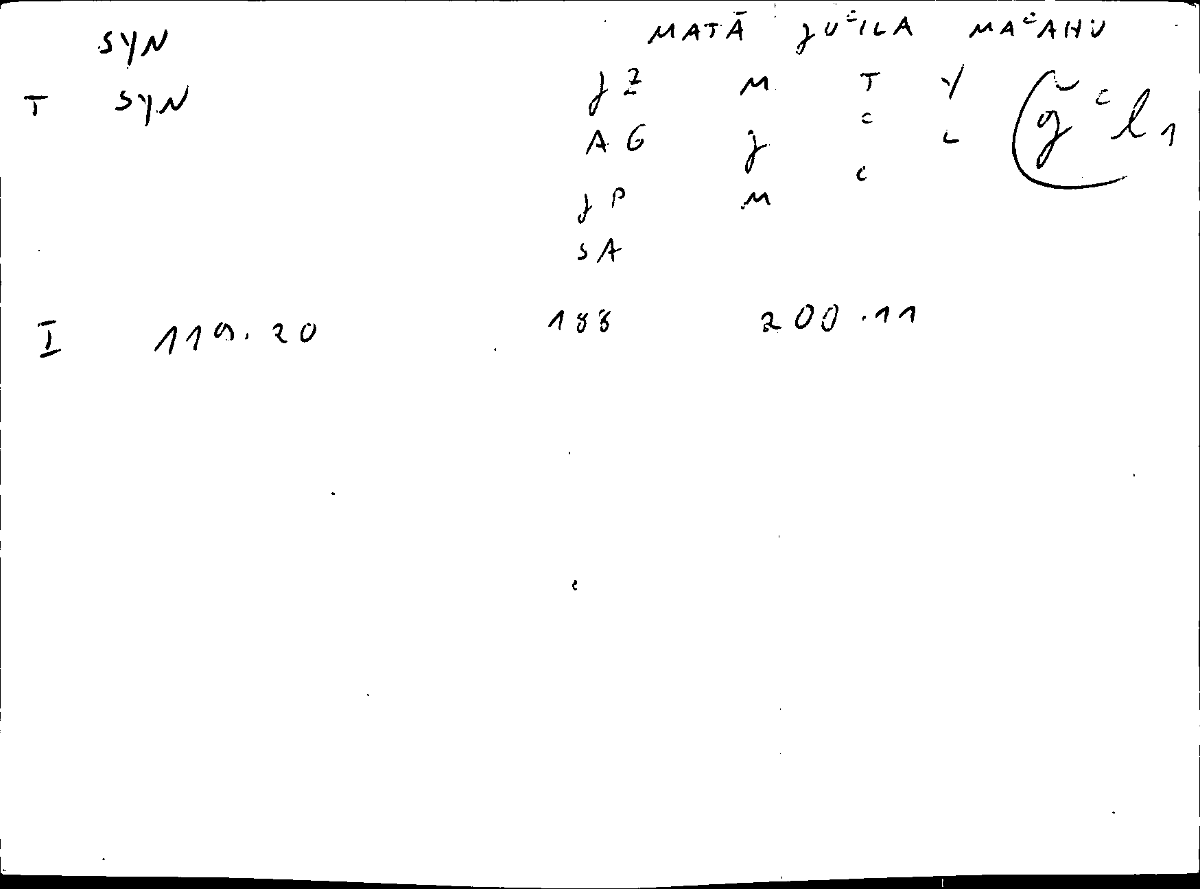 SYN MATĀ JUʿILA MAʿAHU
T SYN JZ M T Y
AG J ʿ L
JP M ʿ
SA
I 119.20 188 200.11